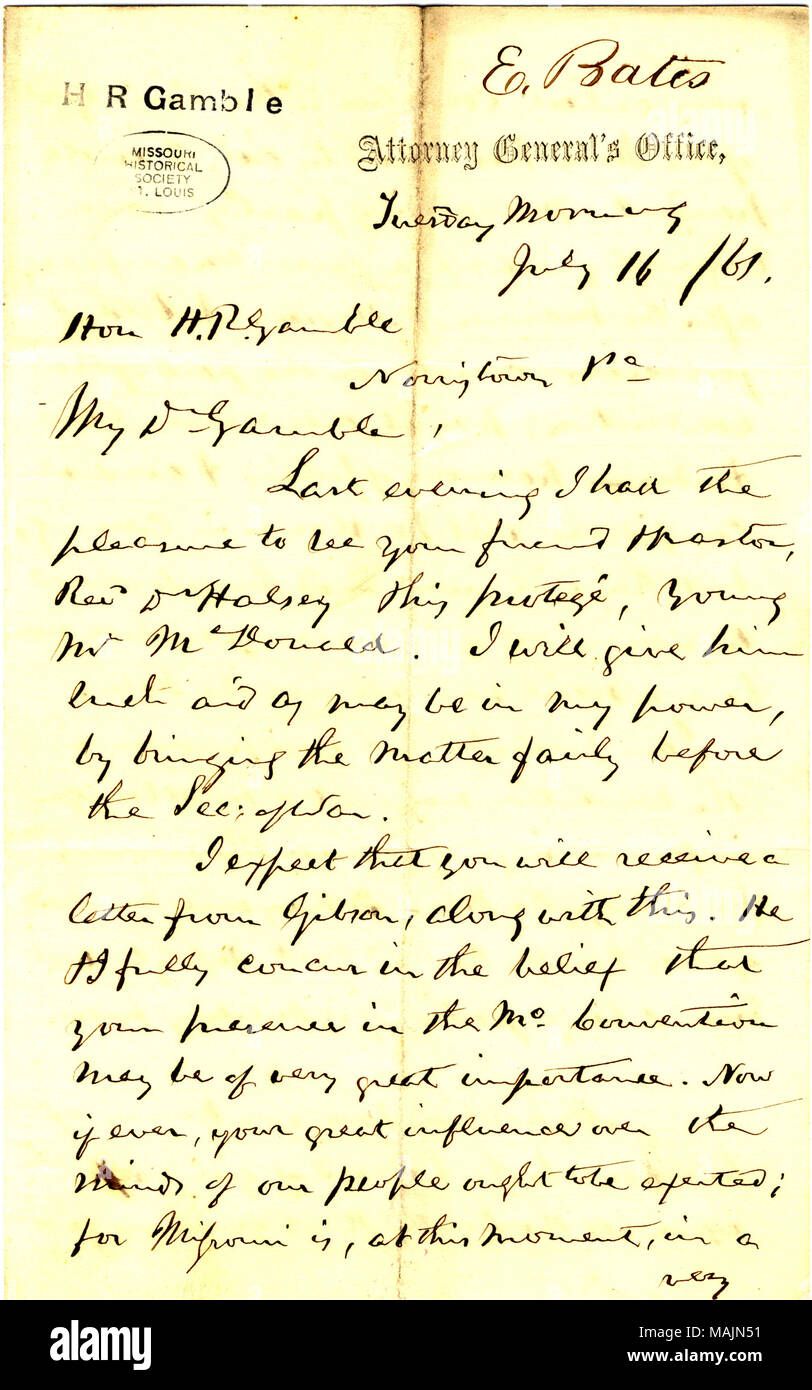 E. Bates
H R Gamble
MISSOURI
HISTORICAL
SOCIETY
ST. LOUIS
Attorney General's Office,
Tuesday Morning
July 16 /61.
Hon H.R. Gamble
Norristown Pa
My Dr Gamble,
Last evening I had the
pleasure to see your friend & pastor,
Revd Dr Halsey & his protegé, young
Mr McDonald. I will give him
such aid as may be in my power,
by bringing the matter fairly before
the Sec: of War.
I expect that you will receive a
letter from Gibson, along with this. He
& I fully concur in the belief that
your presence in the Mo. Convention
may be of very great importance. Now
if ever, your great influence over the
minds of our people ought to be exerted;
for Missouri is, at this moment, in a
very
alamy
Image ID: MAJN51
www.alamy.com